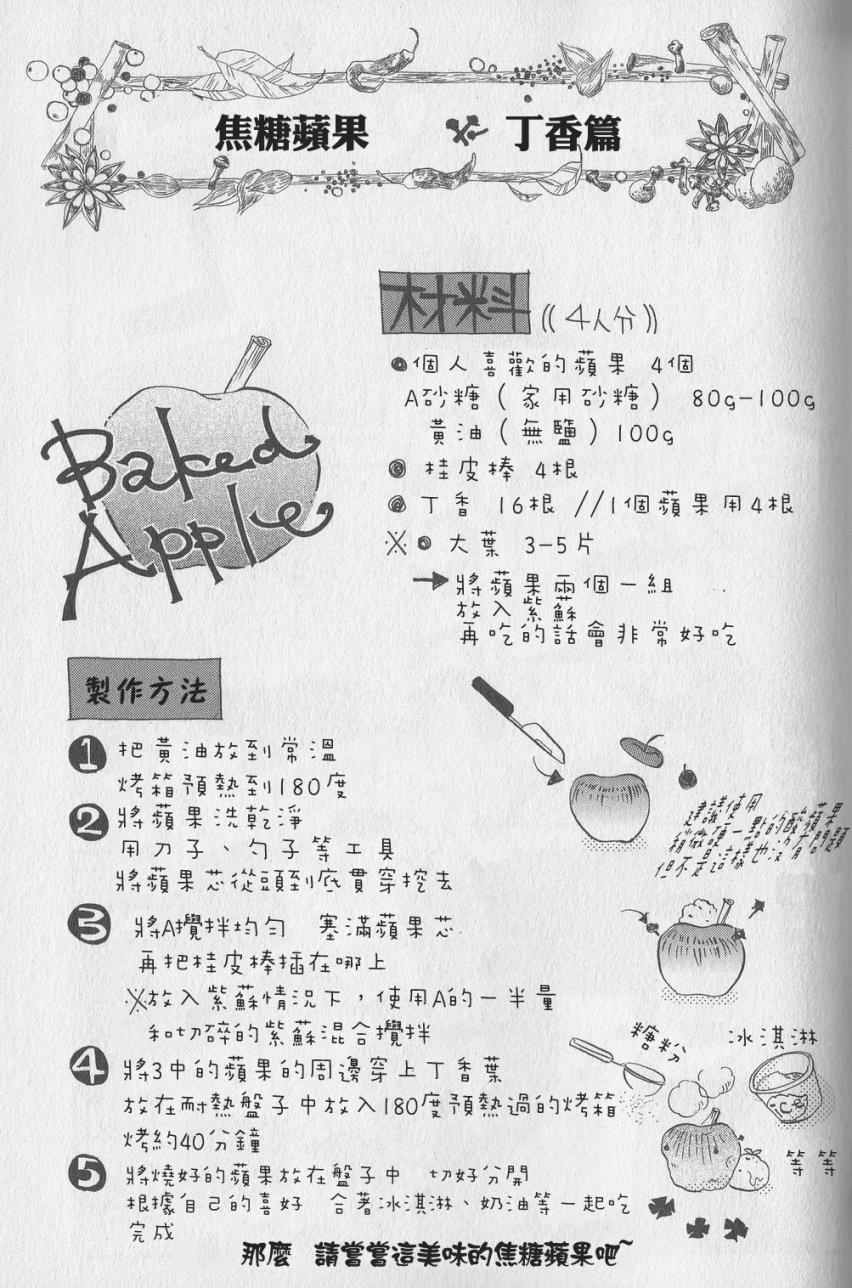 焦糖蘋果 丁香篇
材料 ((4人分))
個人喜歡的蘋果 4個
A砂糖(家用砂糖) 80g-100g
黃油(無鹽)100g
桂皮棒 4根
丁香 16根 //1個蘋果用4根
※ 大葉 3-5片
→將蘋果兩個一組
放入紫蘇
再吃的話會非常好吃
Baked
Apple
製作方法
1 把黃油放到常溫
烤箱預熱到180度
2 將蘋果洗乾淨
用刀子、勺子等工具
將蘋果芯從頭到底貫穿挖去
建議使用
稍微硬一點的酸蘋果
但不是這樣也沒有問題
3 將A攪拌均勻 塞滿蘋果芯
再把桂皮棒插在哪上
※放入紫蘇情況下,使用A的一半量
和切碎的紫蘇混合攪拌
4 將3中的蘋果的周邊穿上丁香葉
放在耐熱盤子中放入180度預熱過的烤箱
烤約40分鐘
糖粉
冰淇淋
等等
5 將燒好的蘋果放在盤子中 切好分開
根據自己的喜好 合著冰淇淋、奶油等一起吃
完成
那麼 請嘗嘗這美味的焦糖蘋果吧~